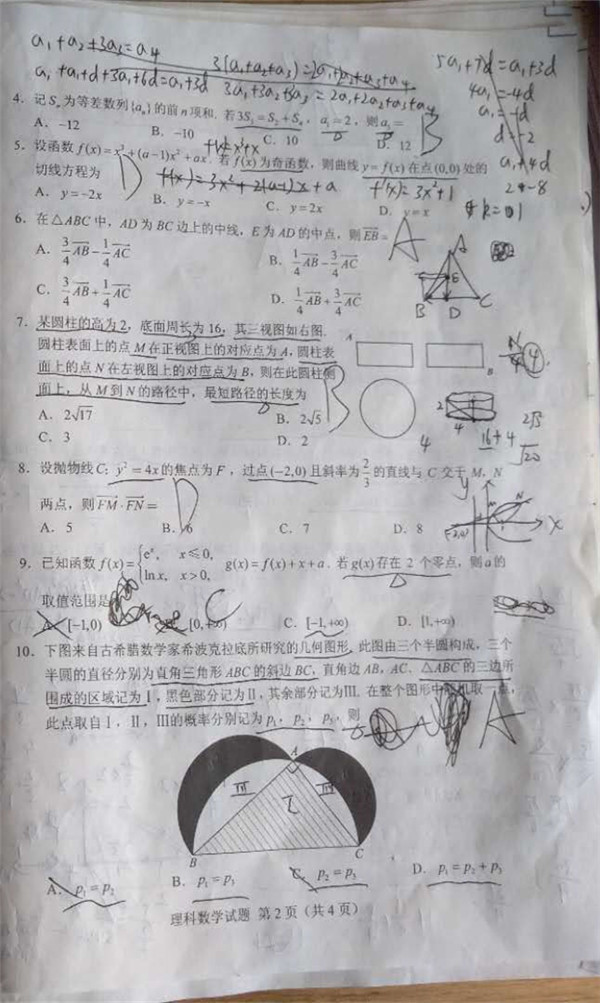 a₁+a₂+3a₃=a₄
3(a₁+a₂+a₃)=2a₁+a₂+a₃+a₄
5a₁+7d=a₁+3d
a₁+a₁+d+3a₁+6d=a₁+3d
3a₁+3a₂+3a₃=2a₁+2a₂+a₃+a₄
4a₁=-4d
a₁=-d
d=-2
a₁+4d
2+-8
4. 记Sₙ为等差数列{aₙ}的前n项和. 若3S₃=S₂+S₄, a₁=2, 则a₅=
B
A. -12
B. -10
C. 10
D. 12
f(x)=x³+x
5. 设函数f(x)=x³+(a-1)x²+ax. 若f(x)为奇函数, 则曲线y=f(x)在点(0,0)处的
切线方程为
D
f(x)=3x²+2(a-1)x+a
f'(x)=3x²+1
k=1
A. y=-2x
B. y=-x
C. y=2x
D. y=x
6. 在△ABC中, AD为BC边上的中线, E为AD的中点, 则EB=
A
A. 3/4 AB - 1/4 AC
B. 1/4 AB - 3/4 AC
C. 3/4 AB + 1/4 AC
D. 1/4 AB + 3/4 AC
A
E
B D C
7. 某圆柱的高为2, 底面周长为16, 其三视图如右图.
圆柱表面上的点M在正视图上的对应点为A, 圆柱表
面上的点N在左视图上的对应点为B, 则在此圆柱侧
面上, 从M到N的路径中, 最短路径的长度为
B
A
B
4
2
4
4
16+4
2√5
√20
A. 2√17
B. 2√5
C. 3
D. 2
8. 设抛物线C: y²=4x的焦点为F, 过点(-2,0)且斜率为2/3的直线与C交于M, N
两点, 则FM·FN=
D
y
N
x
(-2,0)
A. 5
B. 6
C. 7
D. 8
9. 已知函数f(x)={eˣ, x≤0, ln x, x>0, g(x)=f(x)+x+a. 若g(x)存在2个零点, 则a的
取值范围是
C
A. [-1,0)
[0,+∞)
C. [-1,+∞)
D. [1,+∞)
10. 下图来自古希腊数学家希波克拉底所研究的几何图形. 此图由三个半圆构成, 三个
半圆的直径分别为直角三角形ABC的斜边BC, 直角边AB, AC. △ABC的三边所
围成的区域记为Ⅰ, 黑色部分记为Ⅱ, 其余部分记为Ⅲ. 在整个图形中随机取一点,
此点取自Ⅰ, Ⅱ, Ⅲ的概率分别记为p₁, p₂, p₃, 则
A
A
Ⅲ
Ⅰ
Ⅲ
B
C
A. p₁=p₂
B. p₁=p₃
C. p₂=p₃
D. p₁=p₂+p₃
理科数学试题 第2页（共4页）